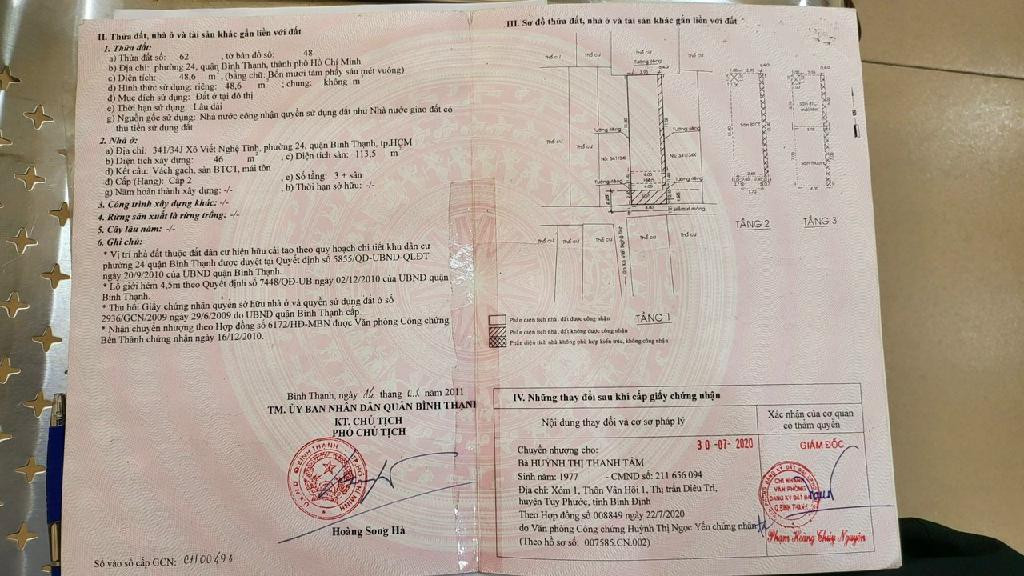 II. Thửa đất, nhà ở và tài sản khác gắn liền với đất
1. Thửa đất:
a) Thửa đất số: 62 , tờ bản đồ số: 48
b) Địa chỉ: phường 24, quận Bình Thạnh, thành phố Hồ Chí Minh
c) Diện tích: 48,6 m , (bằng chữ: Bốn mươi tám phẩy sáu mét vuông)
d) Hình thức sử dụng: riêng: 48,6 m ; chung: không m
đ) Mục đích sử dụng: Đất ở tại đô thị
e) Thời hạn sử dụng: Lâu dài
g) Nguồn gốc sử dụng: Nhà nước công nhận quyền sử dụng đất như Nhà nước giao đất có
thu tiền sử dụng đất
2. Nhà ở:
a) Địa chỉ: 341/34J Xô Viết Nghệ Tĩnh, phường 24, quận Bình Thạnh, tp.HCM
b) Diện tích xây dựng: 46 m , c) Diện tích sàn: 113,5 m
d) Kết cấu: Vách gạch, sàn BTCT, mái tôn
đ) Cấp (Hạng): Cấp 2 , e) Số tầng: 3 + sân
g) Năm hoàn thành xây dựng: -/- h) Thời hạn sở hữu: -/-
3. Công trình xây dựng khác: -/-
4. Rừng sản xuất là rừng trồng: -/-
5. Cây lâu năm: -/-
6. Ghi chú:
* Vị trí nhà đất thuộc đất dân cư hiện hữu cải tạo theo quy hoạch chi tiết khu dân cư
phường 24 quận Bình Thạnh được duyệt tại Quyết định số 5855/QĐ-UBND-QLĐT
ngày 20/9/2010 của UBND quận Bình Thạnh.
* Lộ giới hẻm 4,5m theo Quyết định số 7448/QĐ-UB ngày 02/12/2010 của UBND quận
Bình Thạnh.
* Thu hồi: Giấy chứng nhận quyền sở hữu nhà ở và quyền sử dụng đất ở số
2936/GCN/2009 ngày 29/6/2009 do UBND quận Bình Thạnh cấp.
* Nhận chuyển nhượng theo Hợp đồng số 6172/HĐ-MBN được Văn phòng Công chứng
Bến Thành chứng nhận ngày 16/12/2010.
Bình Thạnh, ngày tháng năm 2011
TM. ỦY BAN NHÂN DÂN QUẬN BÌNH THẠNH
KT. CHỦ TỊCH
PHÓ CHỦ TỊCH
Hoàng Song Hà
Số vào sổ cấp GCN: CH00498
III. Sơ đồ thửa đất, nhà ở và tài sản khác gắn liền với đất
THỔ CƯ
THỔ CƯ
THỔ CƯ
Tường riêng
Tường riêng
Tường riêng
THỔ CƯ
THỔ CƯ
THỔ CƯ
THỔ CƯ
TẦNG 1
TẦNG 2
TẦNG 3
Phần diện tích nhà, đất được công nhận
Phần diện tích nhà, đất không được công nhận
Phần diện tích nhà không phù hợp kiến trúc, không công nhận
IV. Những thay đổi sau khi cấp giấy chứng nhận
Nội dung thay đổi và cơ sở pháp lý
Xác nhận của cơ quan
có thẩm quyền
30-07-2020
GIÁM ĐỐC
Chuyển nhượng cho:
Bà HUỲNH THỊ THANH TÂM
Sinh năm: 1977 - CMND số: 211 656 094
Địa chỉ: Xóm 1, Thôn Vân Hội 1, Thị trấn Diêu Trì,
huyện Tuy Phước, tỉnh Bình Định
Theo Hợp đồng số 008849 ngày 22/7/2020
do Văn phòng Công chứng Huỳnh Thị Ngọc Yến chứng nhận
(Theo hồ sơ số: 007585.CN.002)
CHI NHÁNH
VĂN PHÒNG
ĐĂNG KÝ ĐẤT ĐAI
Q.BÌNH THẠNH
Phạm Hoàng Chay Nguyên